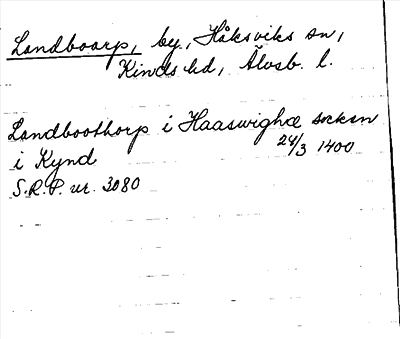 Landboarp, by, Håksviks sn,
Kinds hd, Älvsb. l.
Landboothorp i Haaswighæ socken
i Kynd 24/3 1400
S.R.P. nr. 3080